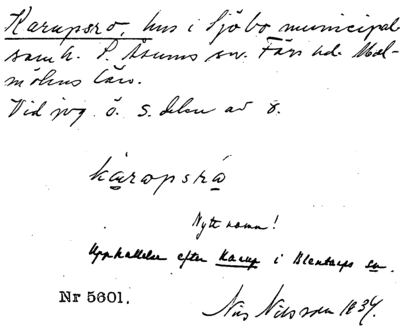 Karupsro, hus i Sjöbo municipal
samh. P. Åsums sn. Färs hd. Mal-
möhus län.
Vid jvg. ö. s. delen av s.
káropsró
Nytt namn!
Uppkallelse efter Karup i Blentarps sn.
Nr 5601.
Nils Nilsson 1934.